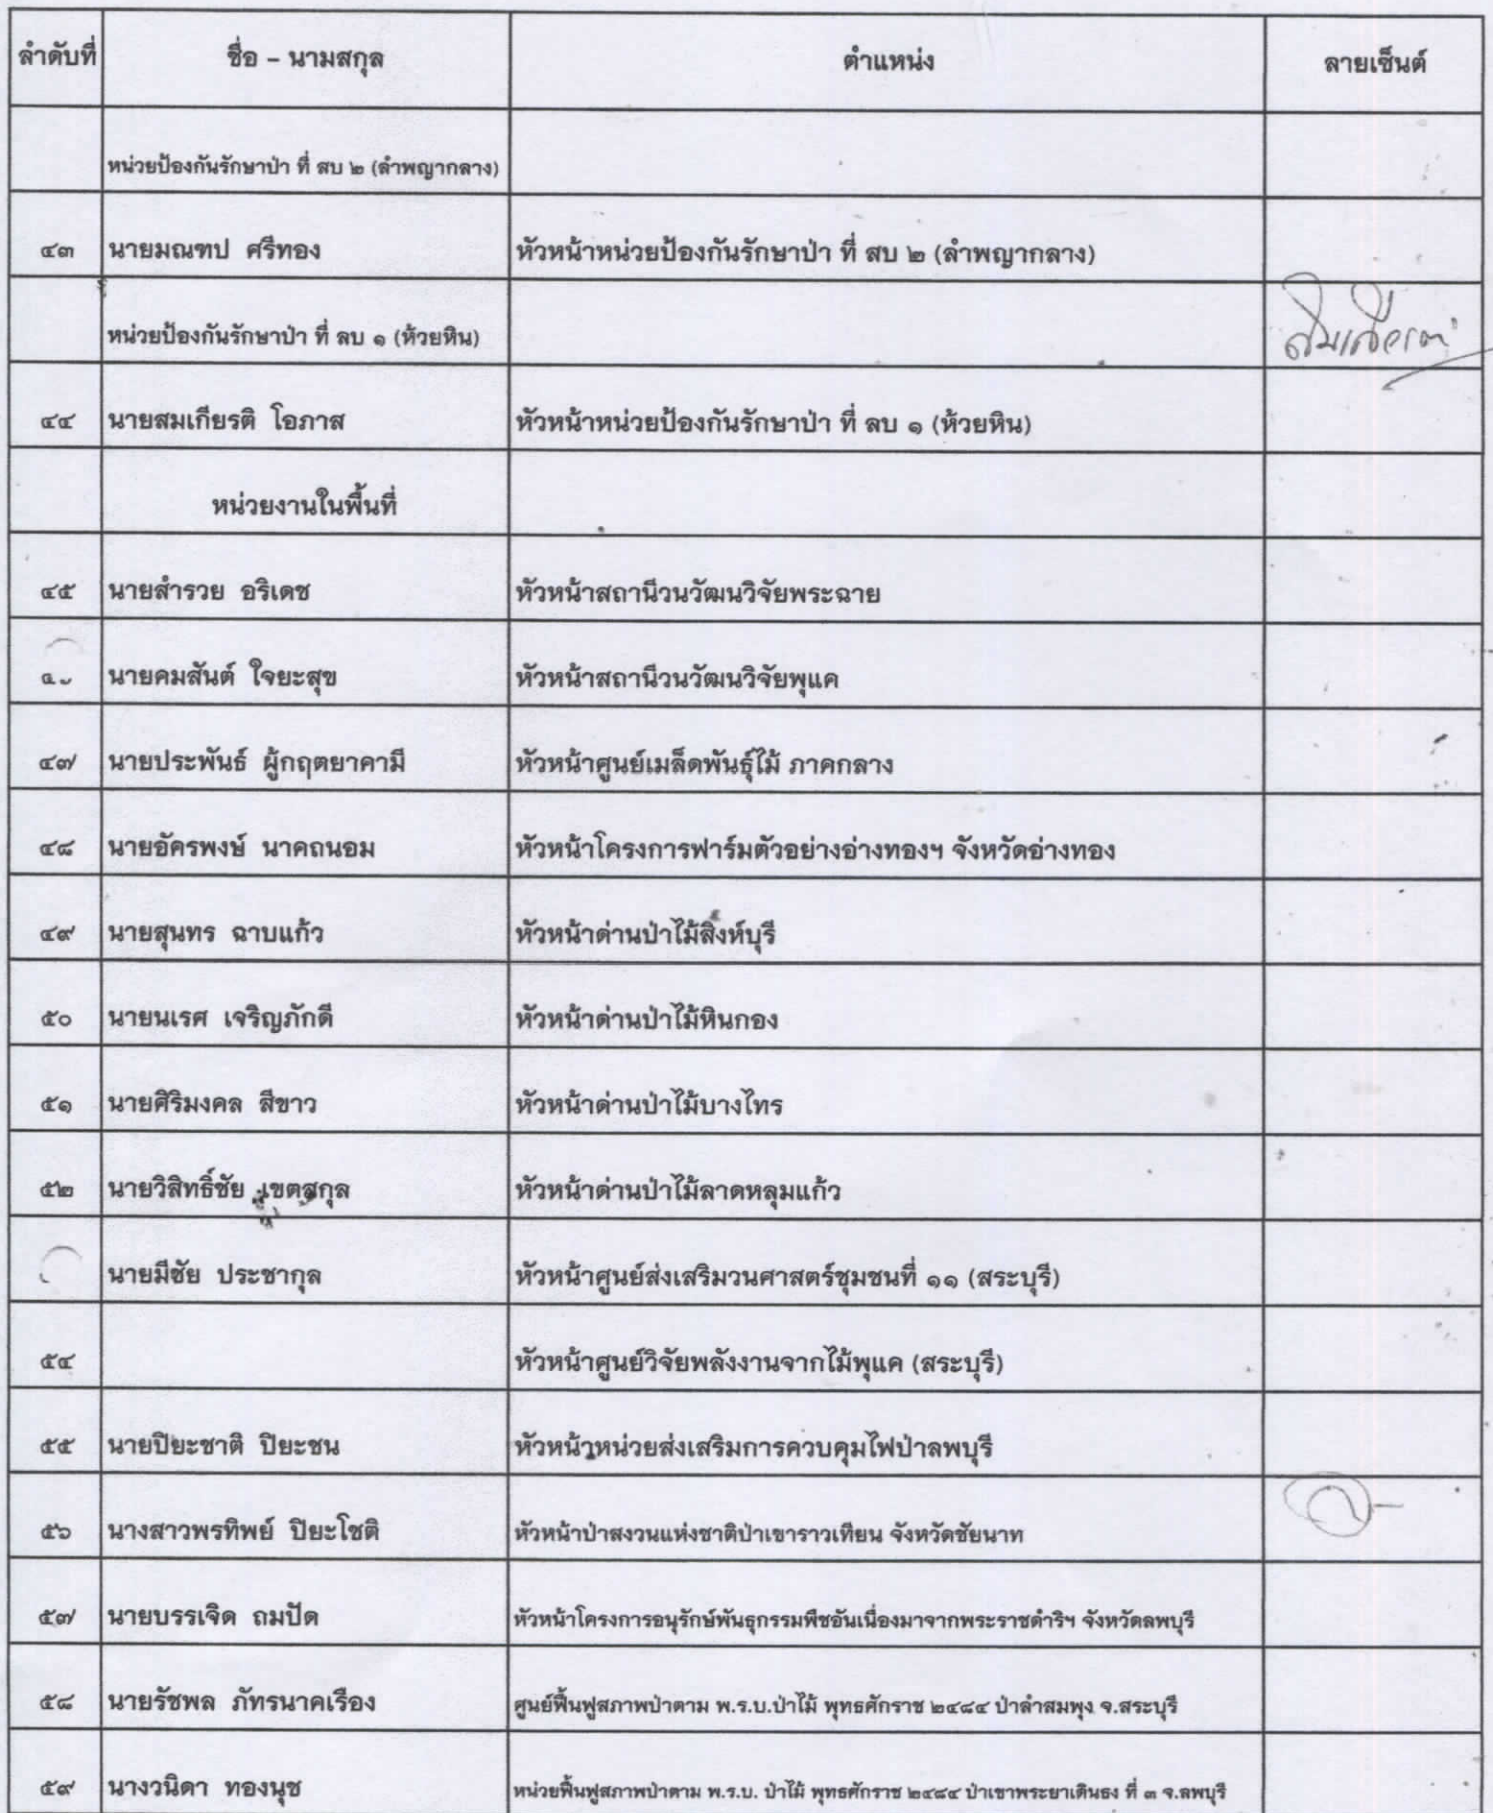 ลำดับที่ ชื่อ - นามสกุล ตำแหน่ง ลายเซ็นต์
หน่วยป้องกันรักษาป่า ที่ สบ ๒ (ลำพญากลาง)
๔๓ นายมณฑป ศรีทอง หัวหน้าหน่วยป้องกันรักษาป่า ที่ สบ ๒ (ลำพญากลาง)
หน่วยป้องกันรักษาป่า ที่ ลบ ๑ (ห้วยหิน)
๔๔ นายสมเกียรติ โอภาส หัวหน้าหน่วยป้องกันรักษาป่า ที่ ลบ ๑ (ห้วยหิน)
หน่วยงานในพื้นที่
๔๕ นายสำรวย อริเดช หัวหน้าสถานีวนวัฒนวิจัยพระฉาย
นายคมสันต์ ใจยะสุข หัวหน้าสถานีวนวัฒนวิจัยพุแค
๔๗ นายประพันธ์ ผู้กฤตยาคามี หัวหน้าศูนย์เมล็ดพันธุ์ไม้ ภาคกลาง
๔๘ นายอัครพงษ์ นาคถนอม หัวหน้าโครงการฟาร์มตัวอย่างอ่างทองฯ จังหวัดอ่างทอง
๔๙ นายสุนทร ฉาบแก้ว หัวหน้าด่านป่าไม้สิงห์บุรี
๕๐ นายนเรศ เจริญภักดี หัวหน้าด่านป่าไม้หินกอง
๕๑ นายศิริมงคล สีขาว หัวหน้าด่านป่าไม้บางไทร
๕๒ นายวิสิทธิ์ชัย เขตสกุล หัวหน้าด่านป่าไม้ลาดหลุมแก้ว
นายมีชัย ประชากุล หัวหน้าศูนย์ส่งเสริมวนศาสตร์ชุมชนที่ ๑๑ (สระบุรี)
๕๔ หัวหน้าศูนย์วิจัยพลังงานจากไม้พุแค (สระบุรี)
๕๕ นายปิยะชาติ ปิยะชน หัวหน้าหน่วยส่งเสริมการควบคุมไฟป่าลพบุรี
๕๖ นางสาวพรทิพย์ ปิยะโชติ หัวหน้าป่าสงวนแห่งชาติป่าเขาราวเทียน จังหวัดชัยนาท
๕๗ นายบรรเจิด ถมปัด หัวหน้าโครงการอนุรักษ์พันธุกรรมพืชอันเนื่องมาจากพระราชดำริฯ จังหวัดลพบุรี
๕๘ นายรัชพล ภัทรนาคเรือง ศูนย์ฟื้นฟูสภาพป่าตาม พ.ร.บ.ป่าไม้ พุทธศักราช ๒๔๘๔ ป่าลำสมพุง จ.สระบุรี
๕๙ นางวนิดา ทองนุช หน่วยฟื้นฟูสภาพป่าตาม พ.ร.บ. ป่าไม้ พุทธศักราช ๒๔๘๔ ป่าเขาพระยาเดินธง ที่ ๓ จ.ลพบุรี